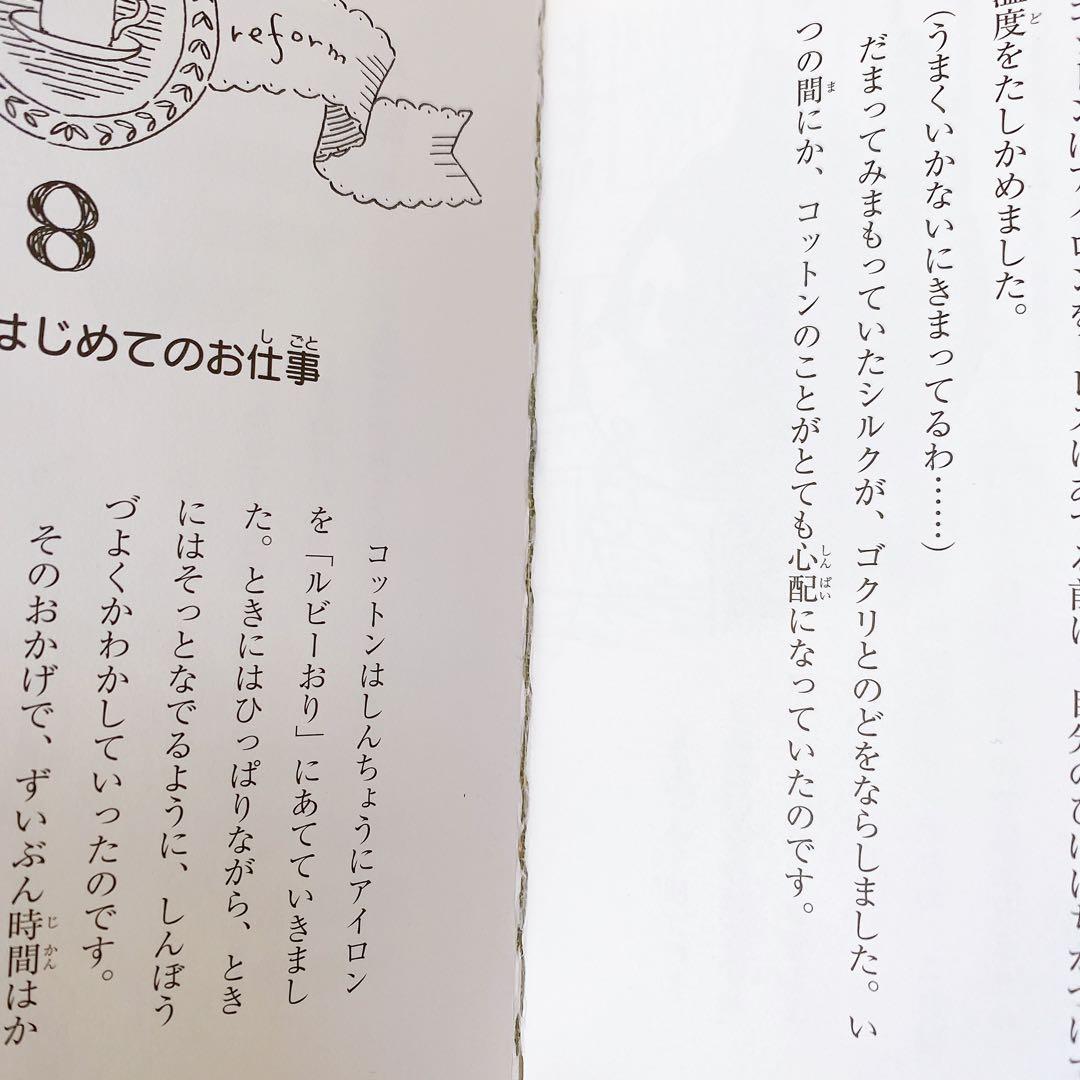 温度をたしかめました。
(うまくいかないにきまってるわ……)
だまってみまもっていたシルクが、ゴクリとのどをならしました。い
つの間にか、コットンのことがとても心配になっていたのです。
reform
8
はじめてのお仕事
コットンはしんちょうにアイロン
を「ルビーおり」にあてていきまし
た。ときにはひっぱりながら、とき
にはそっとなでるように、しんぼう
づよくかわかしていったのです。
そのおかげで、ずいぶん時間はか